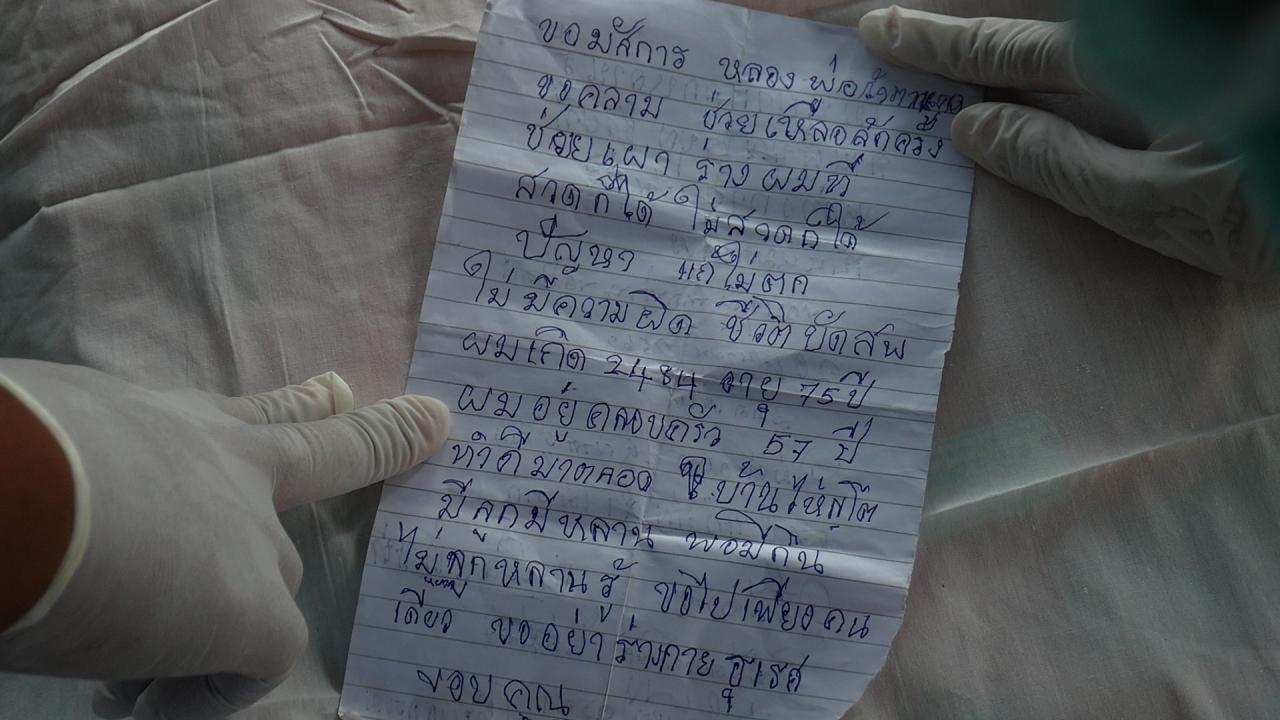 ขอมัสการ หลองพ่อ
ขอคลาม ช่วยเหลือสักครั้ง
ช่อยเผา ร่างผมที
สวดก็ได้ ไม่สวดก็ได้
ปัญหา แก้ไม่ตก
ไม่มีความผิด ชีวิต
ผมเกิด 2484 อายุ 75 ปี
ผมอยู่ 57 ปี
ทำดีมาตลอด บ้าน
มีลูกมีหลาน พอมีกิน
ไม่ ลูกหลานรู้ ขอไปเพียงคน
เดียว ขออย่า ร่างกาย
ขอบคุณ